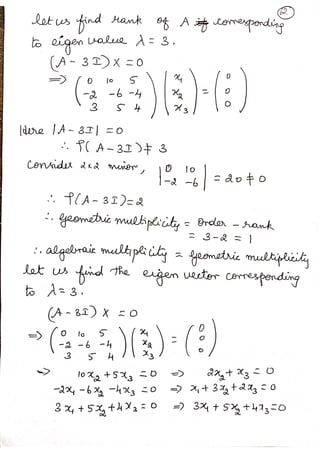 ②
let us find rank of A corresponding
to eigen value λ = 3.
(A - 3I) X = 0
⇒ ( 0 10 5 ) ( x₁ ) = ( 0 )
( -2 -6 -4 ) ( x₂ ) ( 0 )
( 3 5 4 ) ( x₃ ) ( 0 )
Here |A - 3I| = 0
∴ ρ(A - 3I) ≠ 3
Consider 2x2 minor, | 0 10 | = 20 ≠ 0
| -2 -6 |
∴ ρ(A - 3I) = 2
∴ geometric multiplicity = order - rank
= 3 - 2 = 1
∴ algebraic multiplicity = geometric multiplicity
let us find the eigen vector corresponding
to λ = 3.
(A - 3I) X = 0
⇒ ( 0 10 5 ) ( x₁ ) = ( 0 )
( -2 -6 -4 ) ( x₂ ) ( 0 )
( 3 5 4 ) ( x₃ ) ( 0 )
⇒ 10x₂ + 5x₃ = 0 ⇒ 2x₂ + x₃ = 0
-2x₁ - 6x₂ - 4x₃ = 0 ⇒ x₁ + 3x₂ + 2x₃ = 0
3x₁ + 5x₂ + 4x₃ = 0 ⇒ 3x₁ + 5x₂ + 4x₃ = 0